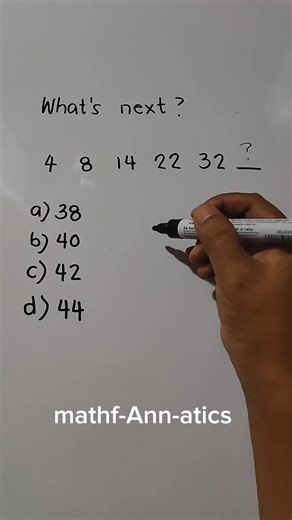 What's next ?
4 8 14 22 32 ?
a) 38
b) 40
c) 42
d) 44
mathf-Ann-atics